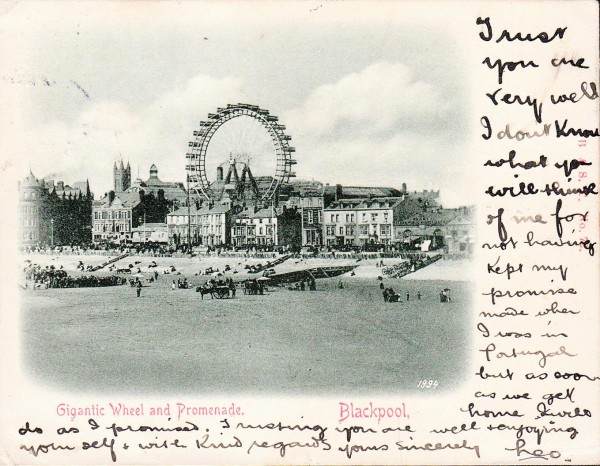 Trust
you are
very well
I dont Know
what you
will think
of me for
not having
Kept my
promise
made when
I was in
Portugal
but as soon
as we get
home I will
do as I promised. Trusting you are well + enjoying
your self + with Kind regards yours Sincerely Leo.
1994
Gigantic Wheel and Promenade.
Blackpool.